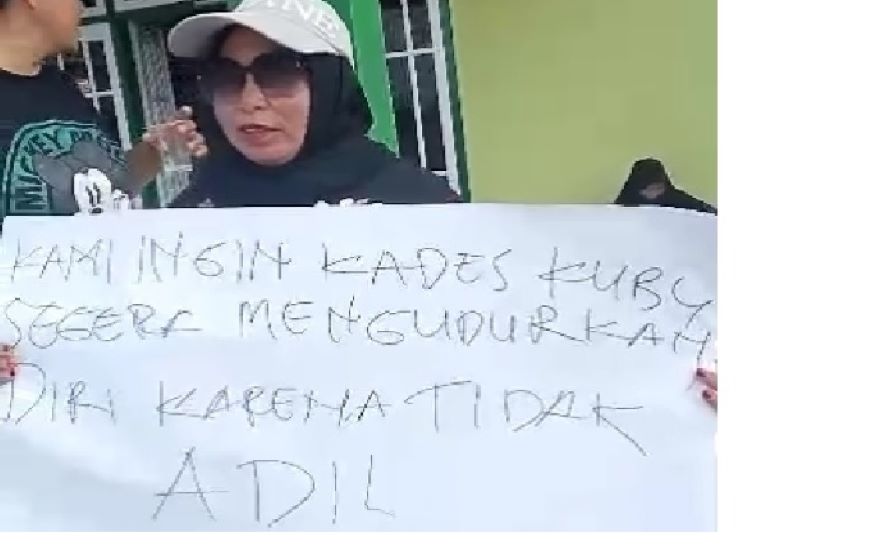 KAMI INGIN KADES KUBU
SEGERA MENGUDURKAN
DIRI KARENA TIDAK
ADIL
MICKEY